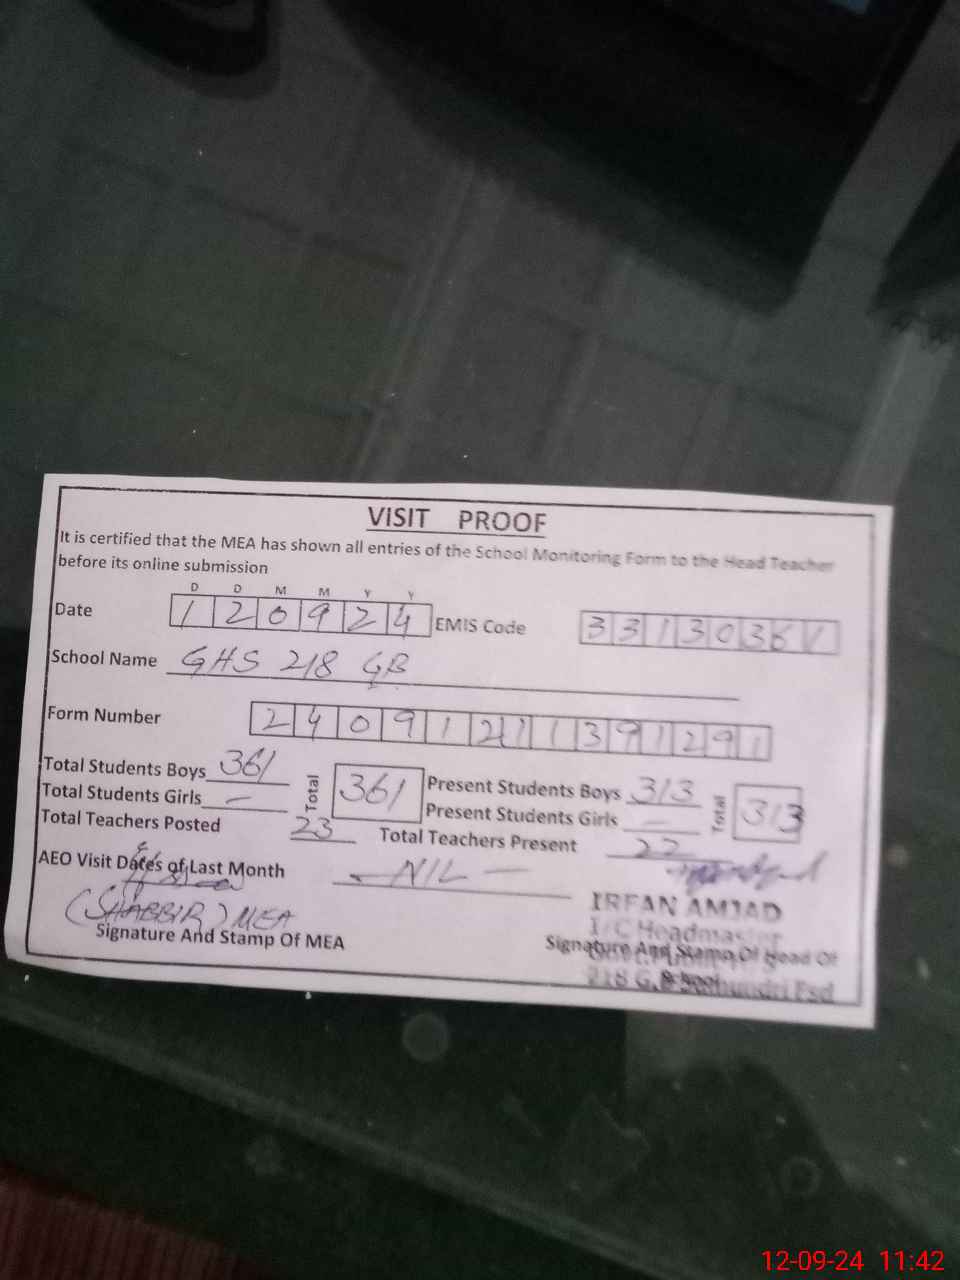 VISIT PROOF
It is certified that the MEA has shown all entries of the School Monitoring Form to the Head Teacher
before its online submission
D D M M Y Y
Date 1 2 0 9 2 4 EMIS Code 3 3 1 3 0 3 6 1
School Name GHS 218 GB
Form Number 2 4 0 9 1 2 1 1 3 9 1 2 9 1
Total Students Boys 361 Total 361 Present Students Boys 313 Total 313
Total Students Girls — Present Students Girls —
Total Teachers Posted 23 Total Teachers Present 22
AEO Visit Dates of Last Month — NIL —
(SHABBIR) MEA
IRFAN AMJAD
I/C Headmaster
Signature And Stamp Of MEA Signature And Stamp Of Head Of
School
218 G.B Samundri Fsd
12-09-24 11:42